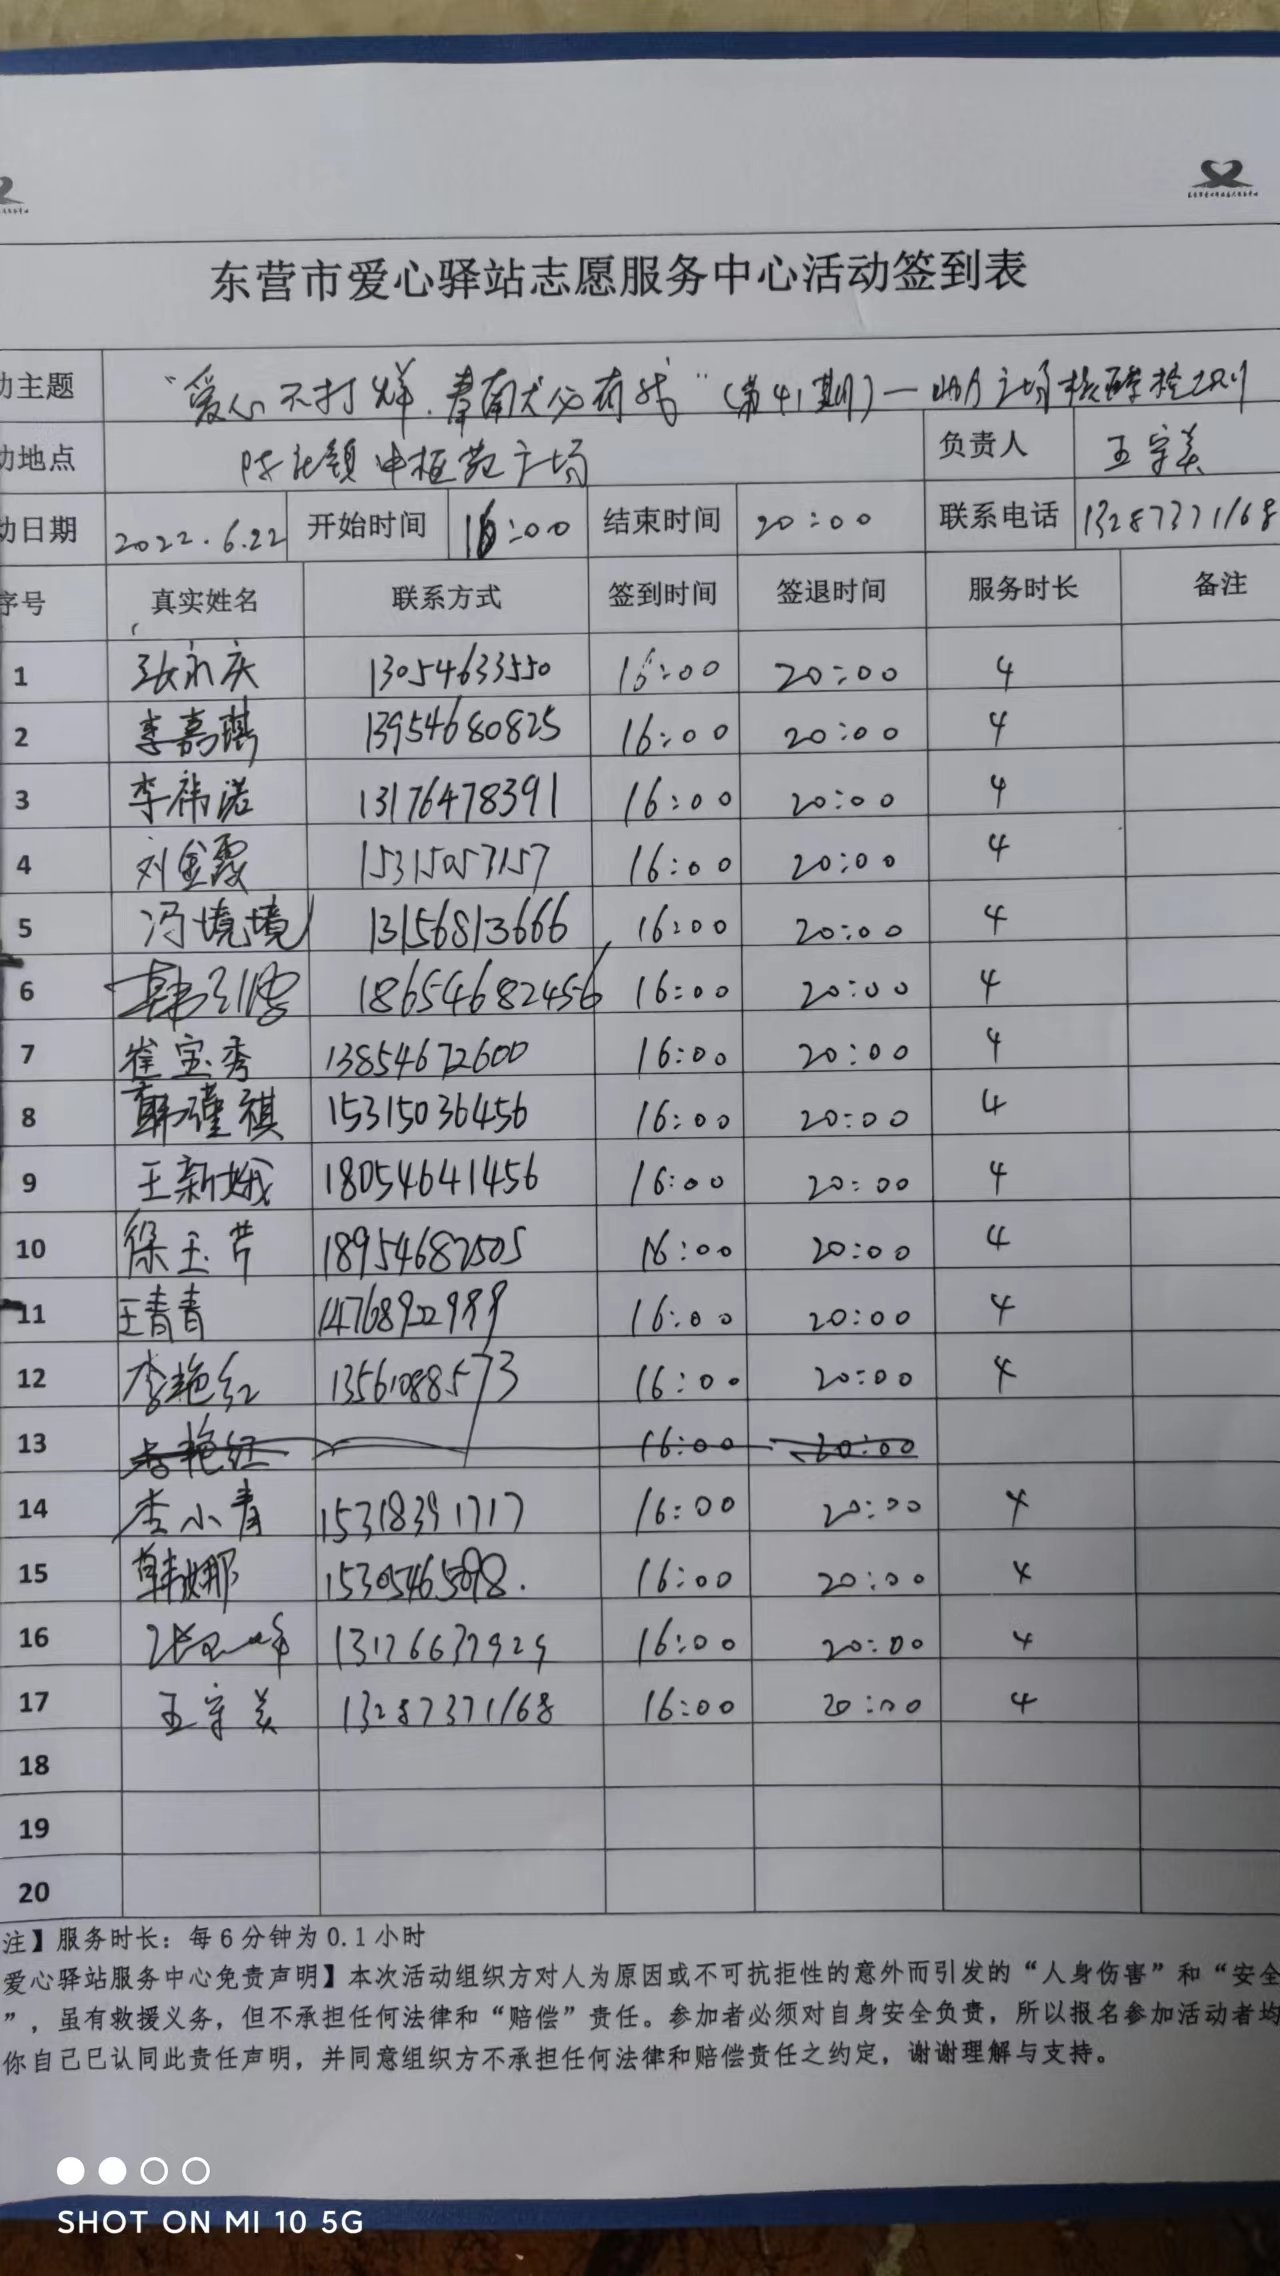 东营市爱心驿站志愿服务中心活动签到表
动主题 “爱心不打烊，有我”（第41期）— 助力广场核酸检测
动地点 广场 负责人 王守美
动日期 2022.6.22 开始时间 16:00 结束时间 20:00 联系电话 13287371168
序号 真实姓名 联系方式 签到时间 签退时间 服务时长 备注
1 张永庆 13054633550 16:00 20:00 4
2 李嘉琪 13954680825 16:00 20:00 4
3 李祎诺 13176478391 16:00 20:00 4
4 刘金霞 15315057157 16:00 20:00 4
5 冯境境 13156813666 16:00 20:00 4
6 韩 18654682456 16:00 20:00 4
7 崔宝秀 13854672600 16:00 20:00 4
8 韩瑾祺 15315036456 16:00 20:00 4
9 王新娥 18054641456 16:00 20:00 4
10 徐玉芹 18954682505 16:00 20:00 4
11 王青青 14768922999 16:00 20:00 4
12 李艳红 13561088573 16:00 20:00 4
13 李艳红 16:00 20:00
14 李小青 15318391717 16:00 20:00 4
15 韩娜 15305465098. 16:00 20:00 4
16 张 13176637929 16:00 20:00 4
17 王守美 13287371168 16:00 20:00 4
18
19
20
注】服务时长：每6分钟为0.1小时
爱心驿站服务中心免责声明】本次活动组织方对人为原因或不可抗拒性的意外而引发的“人身伤害”和“安全
”，虽有救援义务，但不承担任何法律和“赔偿”责任。参加者必须对自身安全负责，所以报名参加活动者均
你自己已认同此责任声明，并同意组织方不承担任何法律和赔偿责任之约定，谢谢理解与支持。
SHOT ON MI 10 5G